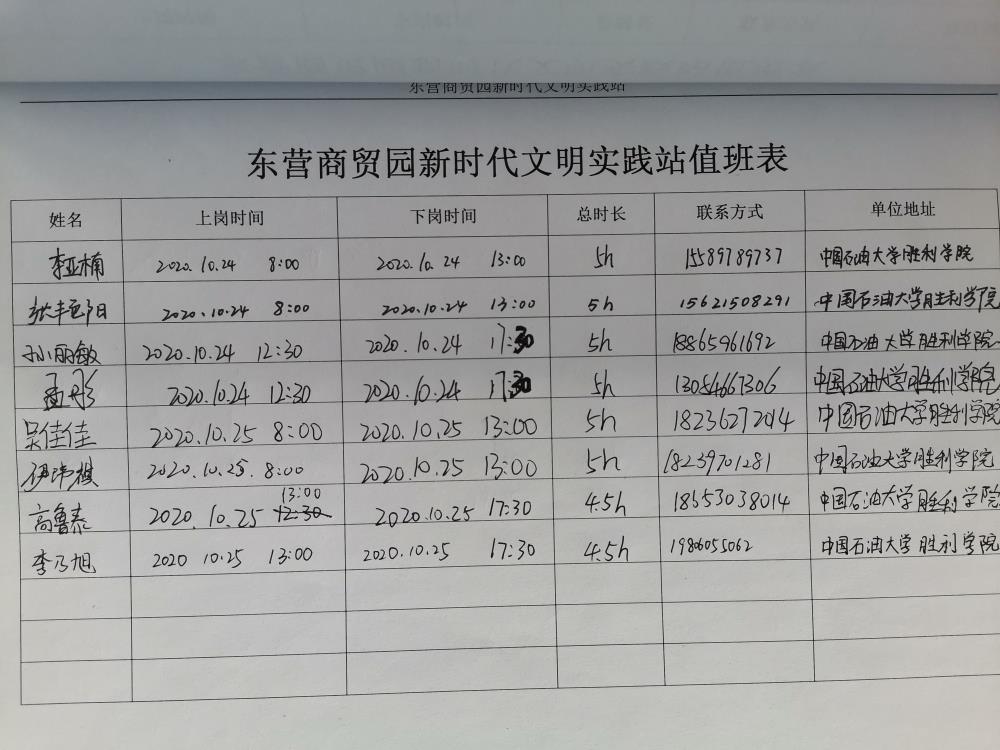 东营商贸园新时代文明实践站
东营商贸园新时代文明实践站值班表
姓名 上岗时间 下岗时间 总时长 联系方式 单位地址
李亚楠 2020.10.24 8:00 2020.10.24 13:00 5h 15589789737 中国石油大学胜利学院
2020.10.24 8:00 2020.10.24 13:00 5h 15621508291 中国石油大学胜利学院
孙丽敏 2020.10.24 12:30 2020.10.24 17:30 5h 18865961692 中国石油大学胜利学院
孟彤 2020.10.24 12:30 2020.10.24 17:30 5h 13054667306 中国石油大学胜利学院
吴佳佳 2020.10.25 8:00 2020.10.25 13:00 5h 18236272014 中国石油大学胜利学院
2020.10.25. 8:00 2020.10.25 13:00 5h 18239701281 中国石油大学胜利学院
13:00
高鲁泰 2020.10.25 12:30 2020.10.25 17:30 4.5h 18553038014 中国石油大学胜利学院
李乃旭 2020 10.25 13:00 2020.10.25 17:30 4.5h 1986055062 中国石油大学胜利学院